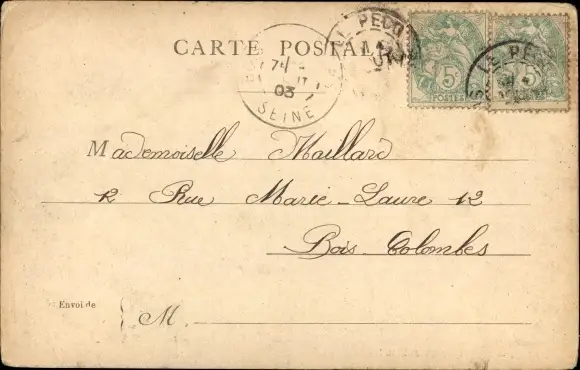 CARTE POSTALE
LE PECQ
LE PECQ
5c
POSTES
5
03
SEINE
Mademoiselle Maillard
12 Rue Marie-Laure 12
Bois Colombes
Envoi de
M.